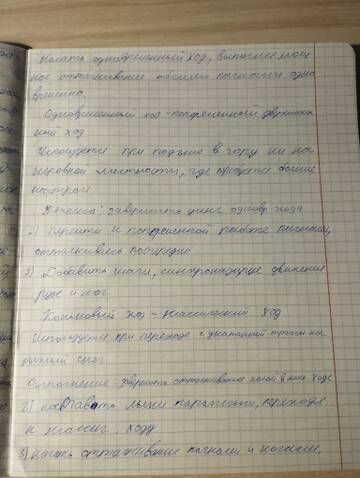 Начать одновременный ход, выполняя мощ
ное отталкивание обеими палками одно
временно.
Одновременный ход - попеременный двухшаж
ный ход
Используется при подъеме в гору или на
неровной местности, где требуется больше
контроля
Техника: завершить цикл одновр хода
2) перейти к попеременной работе палками,
отталкиваясь поочередно
3) Добавить шаги, синхронизируя движения
рук и ног
Коньковый ход - классический ход
Используется при переходе с укатанной трассы на
рыхлый снег
Выполнение - завершить отталкивание ногой в коньк ходе
2) поставить лыжи параллельно, переходя
к классич. ходу
3) начать отталкивание палками и ногами.